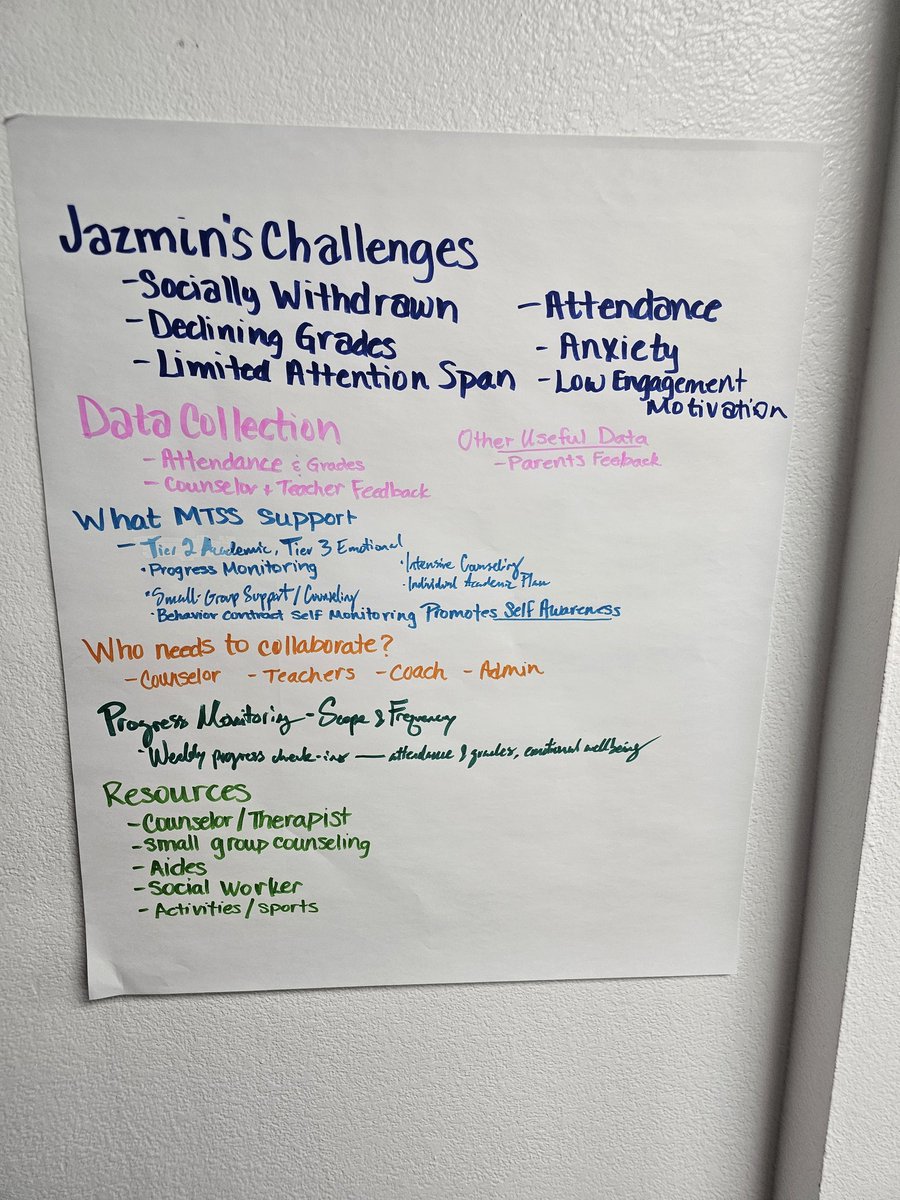 Jazmin's Challenges
- Socially Withdrawn
- Declining Grades
- Limited Attention Span
- Attendance
- Anxiety
- Low Engagement
Motivation
Data Collection
- Attendance & Grades
- Counselor + Teacher Feedback
Other Useful Data
- Parents Feeback
What MTSS Support
- Tier 2 Academic, Tier 3 Emotional
• Progress Monitoring
• Small-Group Support / Counseling
• Intensive Counseling
• Individual Academic Plan
• Behavior Contract Self Monitoring Promotes Self Awareness
Who needs to collaborate?
- Counselor - Teachers - Coach - Admin
Progress Monitoring - Scope & Frequency
• Weekly progress check-ins — attendance & grades, emotional wellbeing
Resources
- Counselor / Therapist
- small group counseling
- Aides
- Social Worker
- Activities / sports